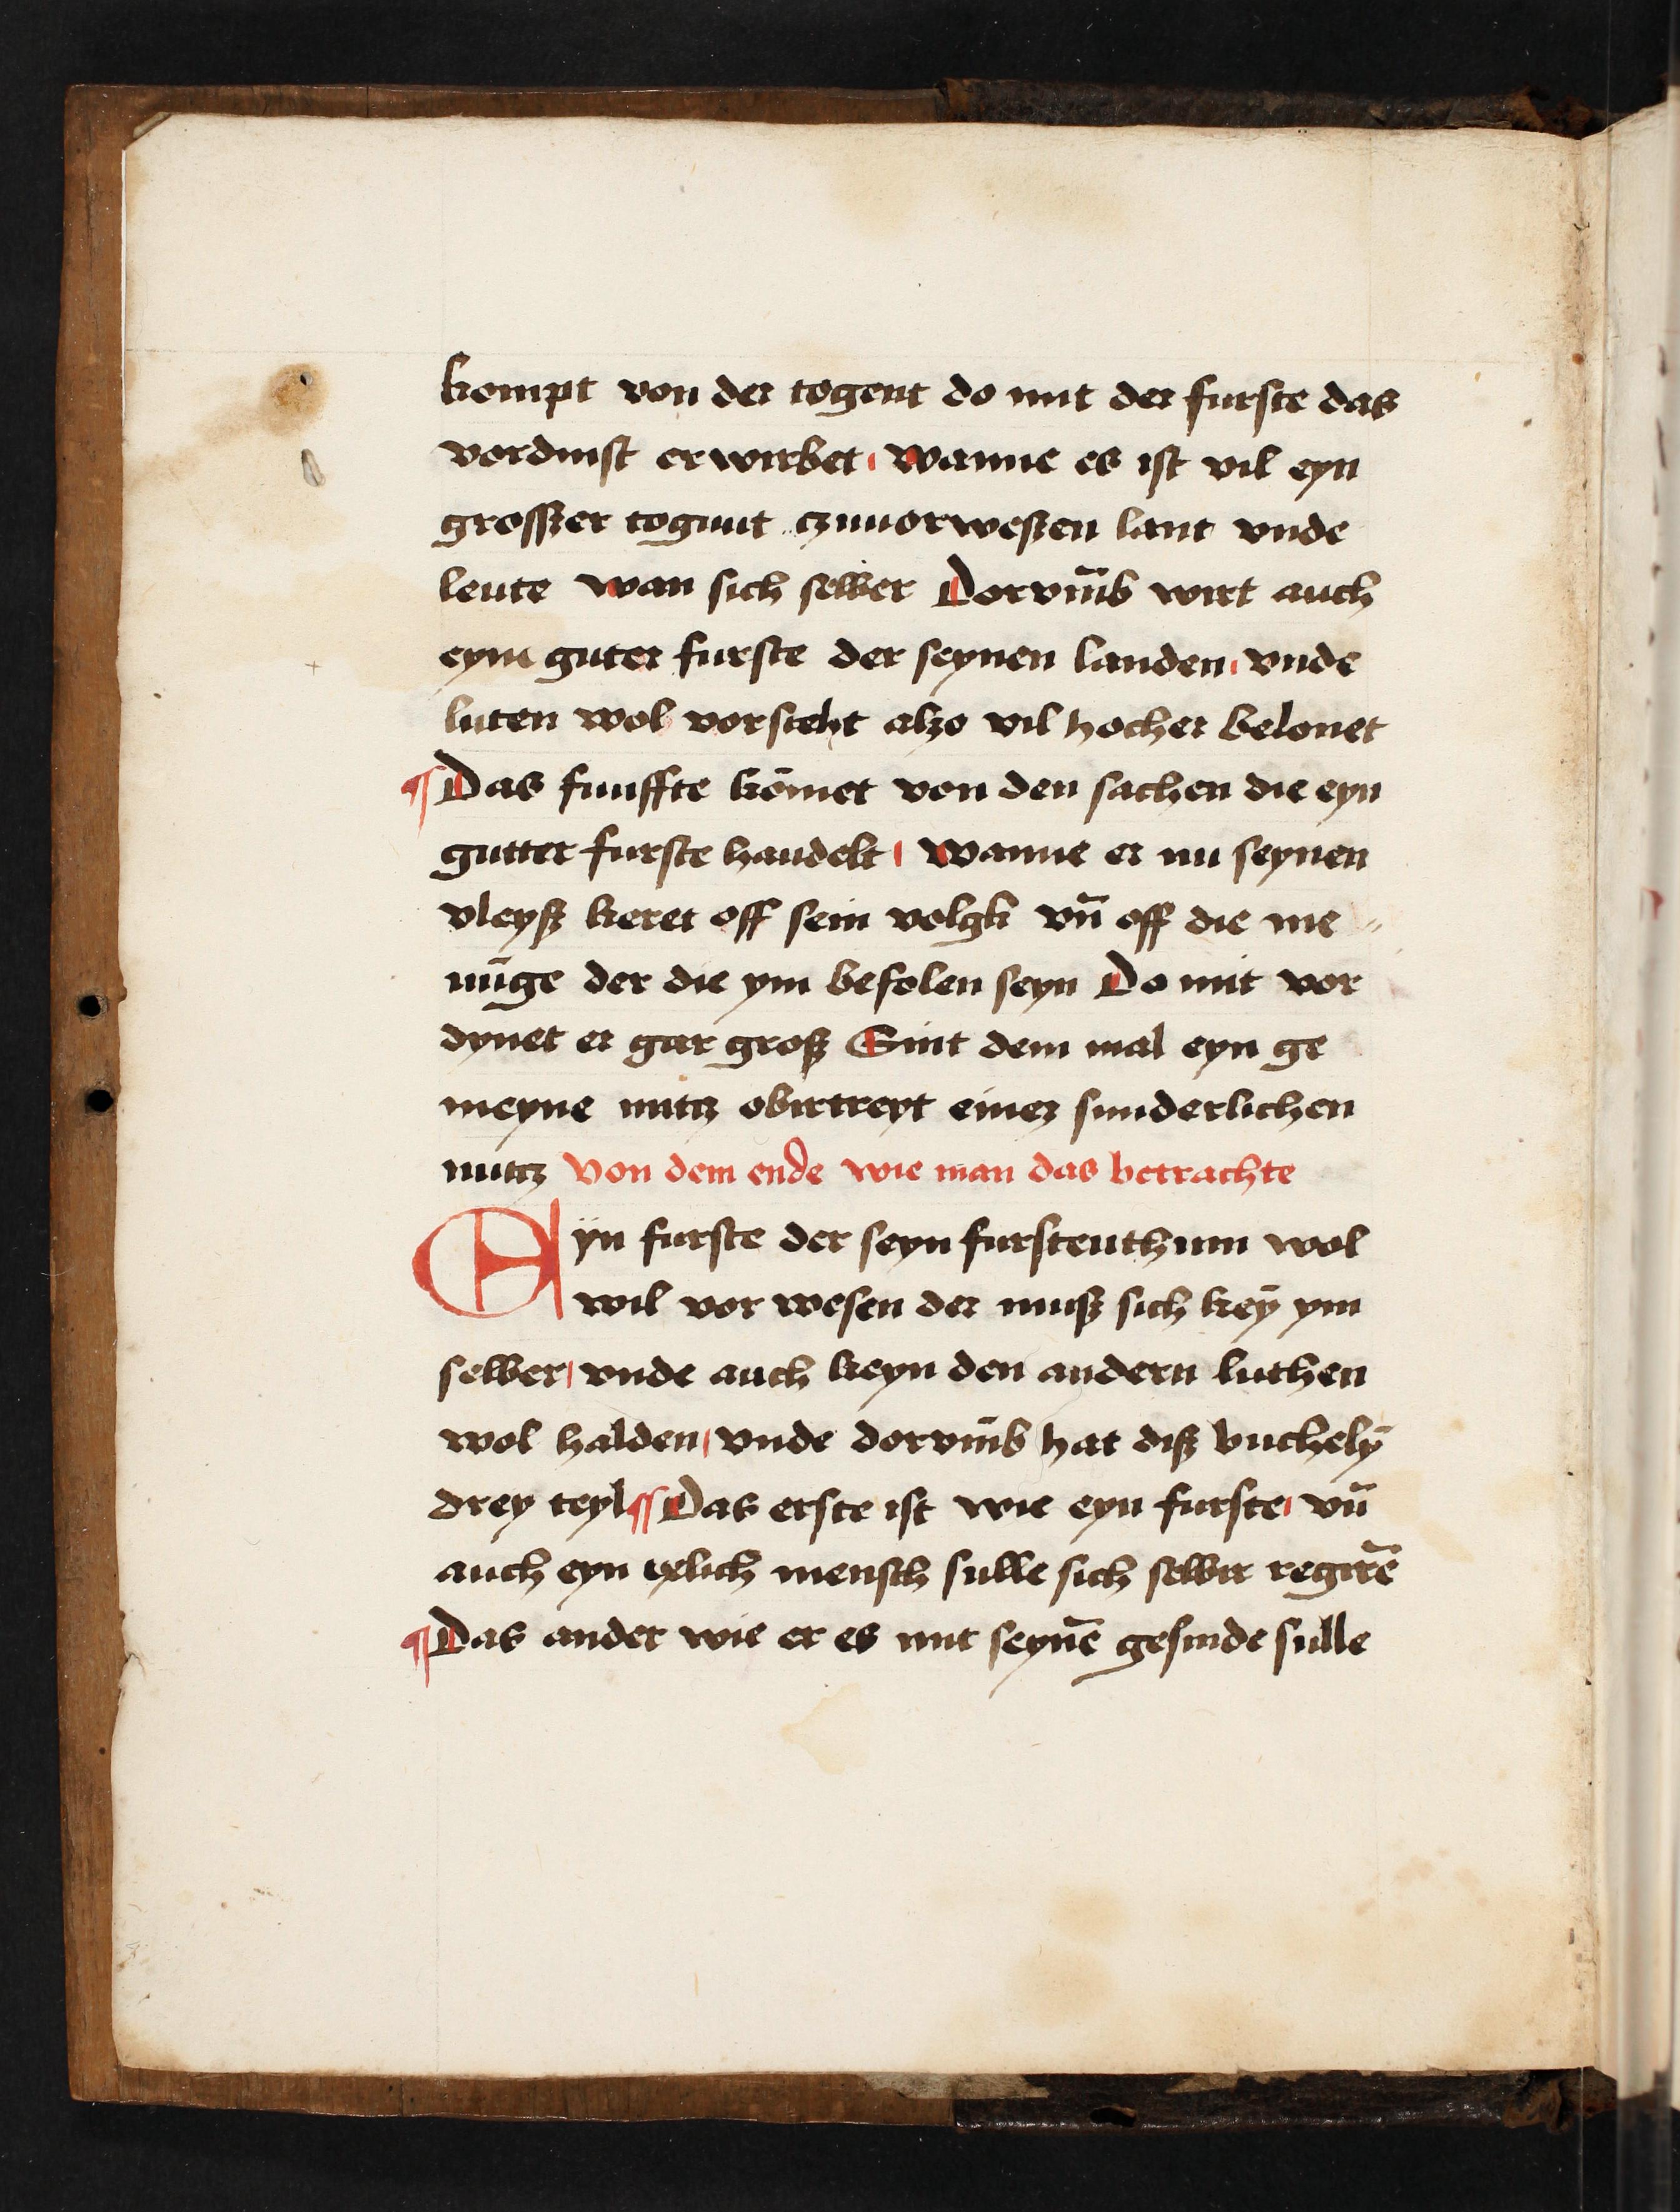 kompt von der togent do mit der furste das
vordinst erwirbet wanne es ist vil eyn
grosszer togunt czuuorweszen lant vnde
leute wan sich selber Dorvm̄b wirt auch
eym guter furste der seynen landen vnde
luten wol vorsteht alzo vil hocher belonet
¶ Das funffte kōmet von den sachen die eyn
gutter furste handelt wanne er nu seynen
vleysz keret off sein volgk vn̄ off die me
nīge der die ym befolen seyn Do mit vor
dynet er gar grosz Sint dem mal eyn ge
meyne nutcz obirtrept einez sunderlichen
nutcz Von dem ende wie man das betrachte
Eyn furste der seyn furstenthum wol
wil vor wesen der musz sich keȳ ym
selber vnde auch keyn den andern luthen
wol halden vnde dorvm̄b hat disz buchelȳ
drey teyl ¶ Das erste ist wie eyn furste vn̄
auch eyn yelich mensch sulle sich selbir regirē
¶ Das ander wie er es mit seynē gesinde sulle